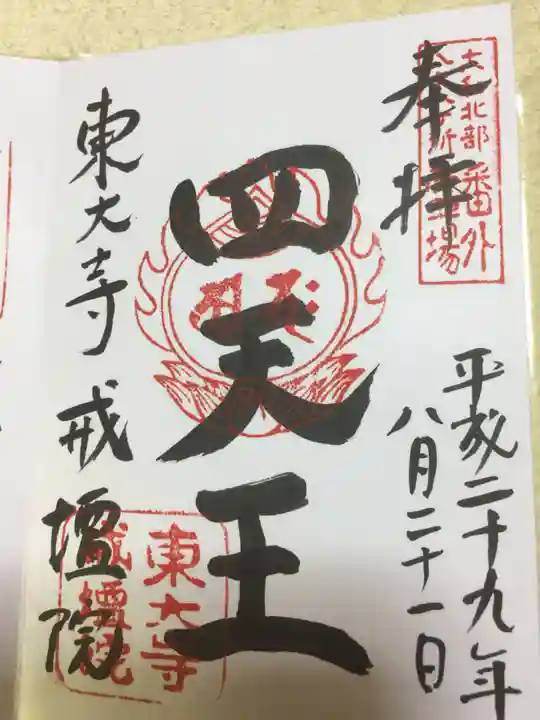 奉拝
大和北部
八十八ヶ所霊場
番外
平成二十九年
八月二十一日
四天王
東大寺戒壇院
東大寺
戒壇院